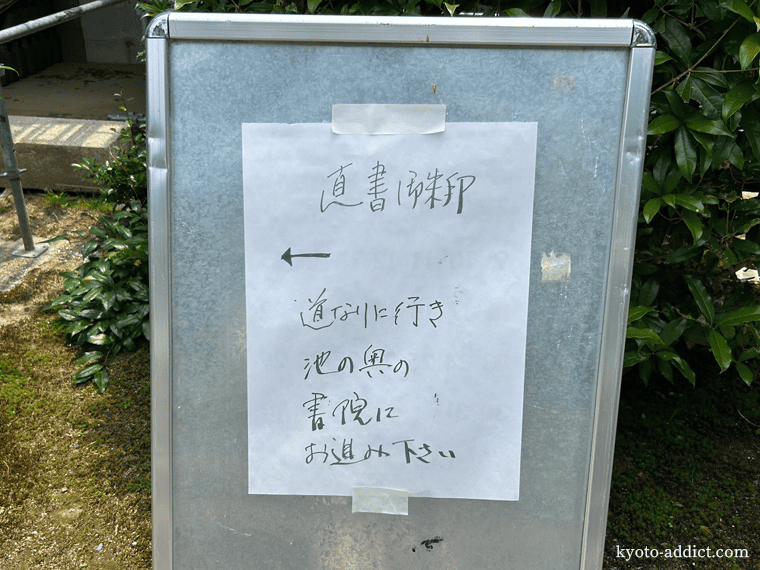 直書御朱印
←
道なりに行き
池の奥の
書院に
お進み下さい
kyoto-addict.com